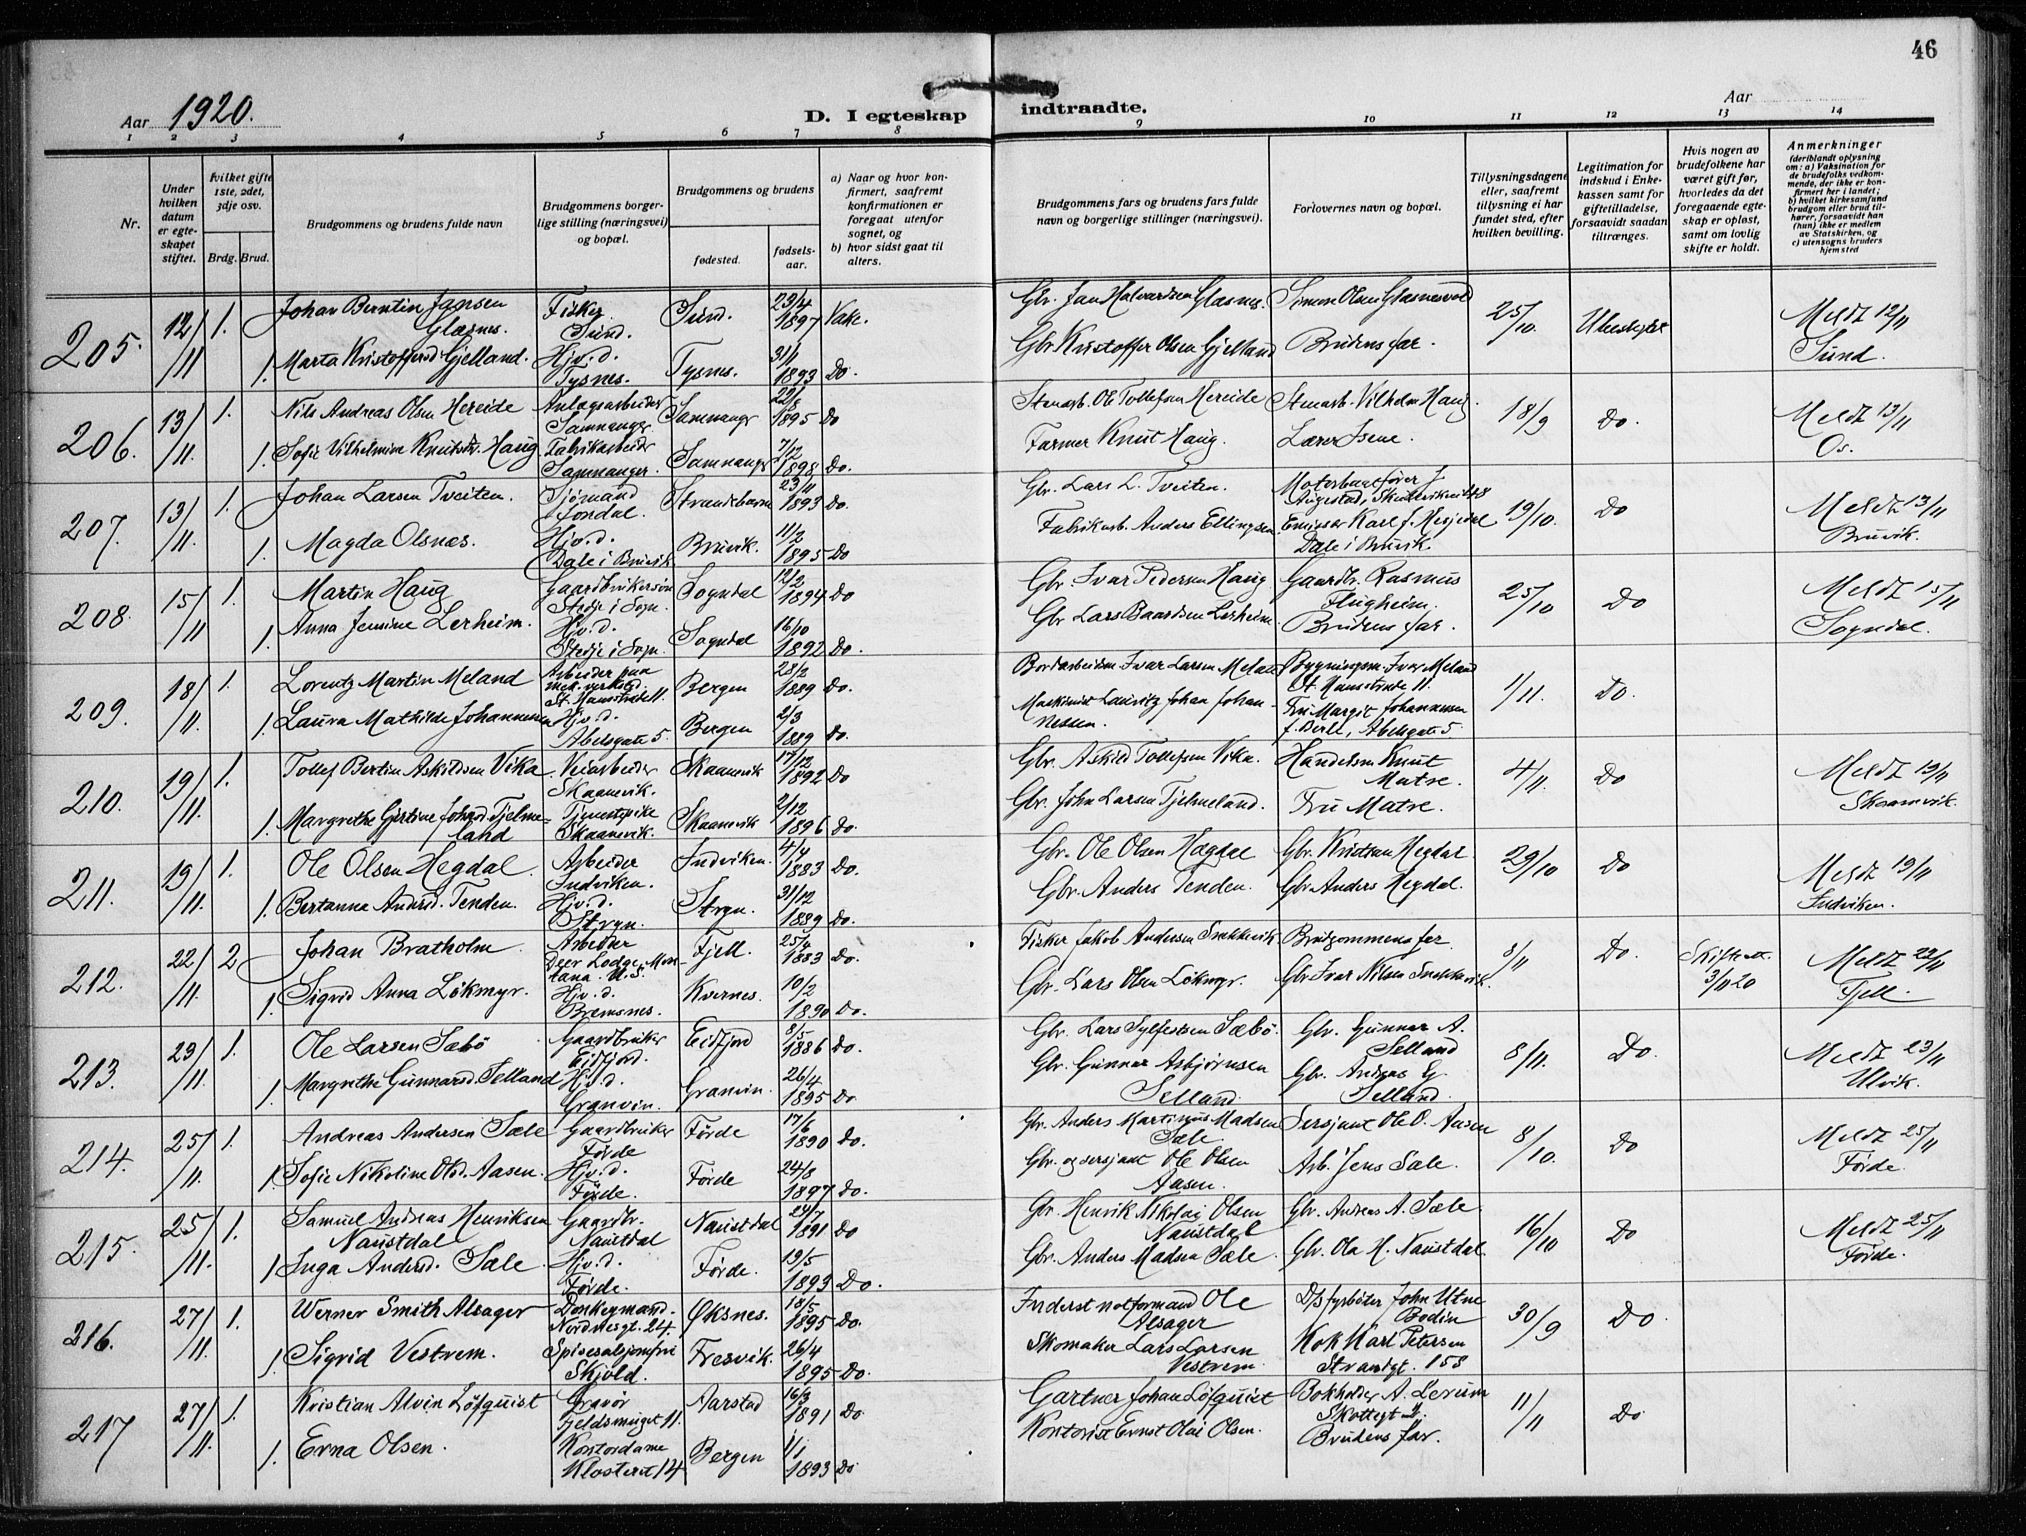 46
Aar 1920.
D. I egteskap indtraadte.
Aar
1 2 3 4 5 6 7 8 9 10 11 12 13 14
Nr.
Under hvilken datum er egteskapet stiftet.
hvilket gifte 1ste, 2det, 3dje osv.
Brdg. Brud.
Brudgommens og brudens fulde navn
Brudgommens borgerlige stilling (næringsvei) og bopæl.
Brudgommens og brudens
fødested.
fødselsaar.
a) Naar og hvor konfirmert, saafremt konfirmationen er foregaat utenfor sognet, og
b) hvor sidst gaat til alters.
Brudgommens fars og brudens fars fulde navn og borgerlige stillinger (næringsvei).
Forlovernes navn og bopæl.
Tillysningsdagene eller, saafremt tillysning ei har fundet sted, efter hvilken bevilling.
Legitimation for indskud i Enkekassen samt for giftetilladelse, forsaavidt saadan tiltrænges.
Hvis nogen av brudefolkene har været gift før, hvorledes da det foregaaende egteskap er opløst, samt om lovlig skifte er holdt.
Anmerkninger
(deriblandt oplysning om: a) Vaksination for de brudefolks vedkommende, der ikke er konfirmert her i landet; b) hvilket kirkesamfund brudgom eller brud tilhører, forsaavidt han (hun) ikke er medlem av Statskirken, og c) utensogns bruders hjemsted
205. 12/11 1. Johan Berntin Jansen Glæsnes. Fisker Sund. Sund. 23/4 1897 Vake. Gbr. Jan Halvardsen Glæsnes. Simon Olsen Glæsnesvold 25/10. Ubeskyttet Meldt 12/11 Sund.
1. Marta Kristoffersd Gjelland. Hjv.d. Tysnes. Tysnes. 31/1 1893 Do. Gbr Kristoffer Olsen Gjelland Brudens far.
206. 13/11. 1. Nils Andreas Olsen Hereide Anlægsarbeider Samnanger. Samnanger 1895 Do Stenarb. Ole Tollefsen Hereide Stenarb. Vilhelm Haug 18/9 Do. Meldt 13/11 Os.
1. Sofie Vilhelmine Knutsdt. Haug Fabrikarbeider Samnanger. Samnanger 7/12 1898 Do. Farmer Knut Haug. Lærer Isene.
207. 13/11. 1. Johan Larsen Tveiten. Sjømand Jondal. Strandebarm 23/11 1893 Do. Gbr. Lars L. Tveiten. Motorbaatfører J Augestad, 19/10. Do Meldt 13/11 Bruvik.
1. Magda Olsnæs. Hjv.d. Dale i Bruvik Bruvik. 11/2 1895 Do Fabrikarb. Anders Ellingsen Emissær Karl J. Hesjedal Dale i Bruvik
208. 15/11 1. Martin Haug Gaardbrukersøn Stedje i Sogn. Sogndal 12/2 1894 Do Gbr. Ivar Pedersen Haug Gaardbr. Rasmus Flugheim. 25/10 Do Meldt 15/11 Sogndal.
1. Anna Jensine Lerheim. Hjv.d. Stedje i Sogn. Sogndal 16/10 1892 Do. Gbr Lars Baardsen Lerheim Brudens far.
209. 18/11. 1. Lorentz Martin Meland Arbeider paa mek. verksted. St. Hansstrede 11. Bergen 28/2 1889 Do. Bordarbeider Ivar Larsen Meland Bygningsm. Ivar Meland St. Hansstrede 11. 1/11. Do.
1. Laura Mathilde Johannessen Hjv.d. Abelsgate 5. Bergen 2/3 1889 Do. Maskinist Lauritz Johan Johannessen. Fru Margit Johannessen f. Berle, Abelsgate 5.
210. 19/11. 1. Tollef Bertin Askildsen Vika. Veiarbeider Skaanevik. Skaanevik 17/12 1892 Do Gbr. Askild Tollefsen Vika. Handelsm Knut Matre. 4/11. Do Meldt 19/11 Skaanevik.
1. Margrethe Gjertine Johnsd Tjelmeland Tjenestpike Skaanevik. Skaanevik 2/12 1896 Do. Gbr. John Larsen Tjelmeland. Fru Matre.
211. 19/11. 1. Ole Olsen Hegdal. Arbeider Indviken. Indviken. 4/4 1883 Do. Gbr. Ole Olsen Hegdal Gbr. Kristian Hegdal. 29/10 Do Meldt 19/11 Indviken.
1. Bertanna Andersd. Tenden. Hjv.d. Stryn. Stryn. 31/12 1889 Do. Gbr. Anders Tenden. Gbr Anders Hegdal.
212. 22/11. 2 Johan Bratholm Arbeider Deer Lodge, Montana. U.S. Fjell. 25/4 1883 Do. Fisker Jakob Andersen Snekkevik Brudgommens far 3/11 Do. Skifteatt. 3/11 20 Meldt 22/11 Fjell.
1. Sigrid Anna Løkmyr. Hjv.d. Bremsnes. Kvernes. 10/2 1890 Do. Gbr. Lars Olsen Løkmyr. Gbr Ivar Nilsen Snekkevik.
213. 23/11. 1. Ole Larsen Sæbø Gaardbruker Eidfjord. Eidfjord 8/5 1886 Do. Gbr. Lars Sylfestsen Sæbø. Gbr. Gunnar A. Selland 8/11. Do. Meldt 23/11 Ulvik.
1. Margrethe Gunnarsd. Selland Hjv.d. Granvin. Granvin. 26/4 1895 Do Gbr. Gunnar Asbjørnsen Selland Gbr. Andreas G Selland.
214. 25/11. 1. Andreas Andersen Sæle Gaardbruker Førde Førde 17/6 1890 Do. Gbr. Anders Martinus Madsen Sæle Sersjant Ole O. Aasen 8/10. Do Meldt 25/11 Førde.
1. Sofie Nikoline Olsd. Aasen. Hjv.d. Førde. Førde 24/8 1897 Do. Gbr. og sersjant Ole Olsen Aasen. Arb. Jens Sæle.
215. 25/11. 1. Samuel Andreas Henriksen Naustdal Gaardbr. Naustdal Naustdal 24/7 1891 Do Gbr. Henrik Nikolai Olsen Naustdal Gbr. Andreas A. Sæle. 16/10 Do Meldt 25/11 Førde.
1. Inga Andersd. Sæle. Hjv.d. Førde. Førde. 19/5 1893 Do. Gbr. Anders Madsen Sæle. Gbr. Ola H. Naustdal.
216. 27/11. 1. Werner Smith Alsager Donkeymand. Nordnesgt. 24. Øksnes. 18/5 1895 Do. Inderst notformand Ole Alsager D/S fyrbøter John Utne Bodin 30/9 Do.
1. Sigrid Vestrem. Spisesalsjomfru Skjold. Fresvik. 26/4 1895 Do. Skomaker Lars Larsen Vestrem. Kok Karl Petersen Strandgt. 158
217 27/11. 1. Kristian Alvin Löfquist Gravør Fjeldsmuget 11. Aarstad 16/3 1891 Do Gartner Johan Löfquist Bokholder A. Lerum Skottegt 11/11 Do
1. Erna Olsen. Kontordame Klosteret 14 Bergen 1/1 1893 Do Kontorist Ernst Olai Olsen. Brudens far.